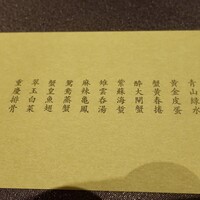 青山綠水
黃金皮蛋
蟹黃春捲
醉大閘蟹
紫蘇海蜇
雉雲吞湯
麻辣龜鳳
鴛鴦蒸蟹
蟹皇魚翅
翠玉白菜
重慶排骨